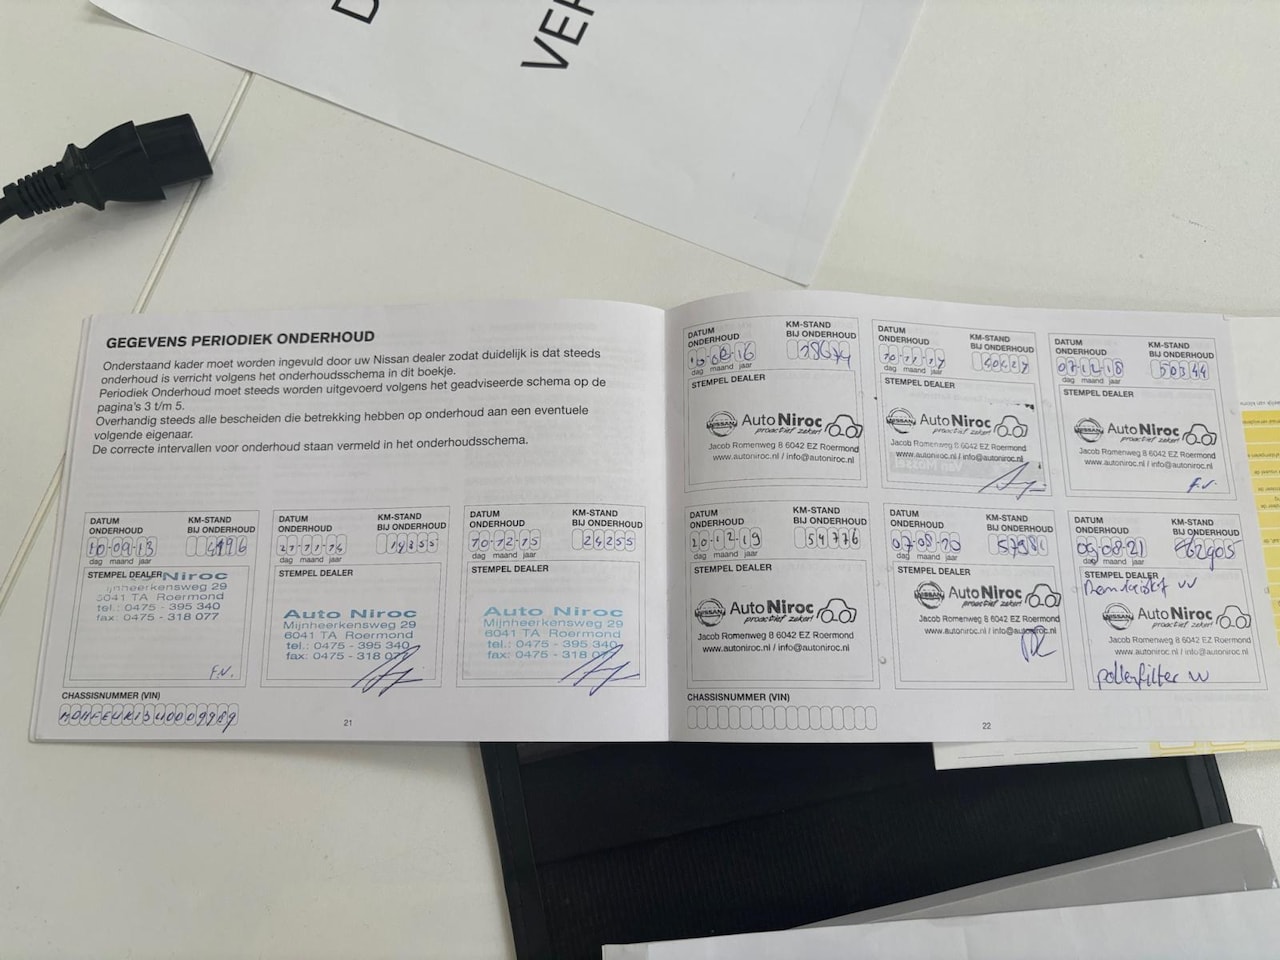 VER
GEGEVENS PERIODIEK ONDERHOUD
Onderstaand kader moet worden ingevuld door uw Nissan dealer zodat duidelijk is dat steeds
onderhoud is verricht volgens het onderhoudsschema in dit boekje.
Periodiek Onderhoud moet steeds worden uitgevoerd volgens het geadviseerde schema op de
pagina's 3 t/m 5.
Overhandig steeds alle bescheiden die betrekking hebben op onderhoud aan een eventuele
volgende eigenaar.
De correcte intervallen voor onderhoud staan vermeld in het onderhoudsschema.
DATUM ONDERHOUD KM-STAND BIJ ONDERHOUD
10-09-13 4196
dag maand jaar
STEMPEL DEALER
Niroc
ijnheerkensweg 29
6041 TA Roermond
tel.: 0475 - 395 340
fax: 0475 - 318 077
F.V.
DATUM ONDERHOUD KM-STAND BIJ ONDERHOUD
21-11-14 14355
dag maand jaar
STEMPEL DEALER
Auto Niroc
Mijnheerkensweg 29
6041 TA Roermond
tel.: 0475 - 395 340
fax: 0475 - 318 077
DATUM ONDERHOUD KM-STAND BIJ ONDERHOUD
10-12-15 24255
dag maand jaar
STEMPEL DEALER
Auto Niroc
Mijnheerkensweg 29
6041 TA Roermond
tel.: 0475 - 395 340
fax: 0475 - 318 077
CHASSISNUMMER (VIN)
21
DATUM ONDERHOUD KM-STAND BIJ ONDERHOUD
dag maand jaar
STEMPEL DEALER
NISSAN Auto Niroc
proactief zeker!
Jacob Romenweg 8 6042 EZ Roermond
www.autoniroc.nl / info@autoniroc.nl
DATUM ONDERHOUD KM-STAND BIJ ONDERHOUD
10-11-17 40427
dag maand jaar
STEMPEL DEALER
NISSAN Auto Niroc
proactief zeker!
Jacob Romenweg 8 6042 EZ Roermond
www.autoniroc.nl / info@autoniroc.nl
DATUM ONDERHOUD KM-STAND BIJ ONDERHOUD
07-12-18 50344
dag maand jaar
STEMPEL DEALER
NISSAN Auto Niroc
proactief zeker!
Jacob Romenweg 8 6042 EZ Roermond
www.autoniroc.nl / info@autoniroc.nl
F.V.
DATUM ONDERHOUD KM-STAND BIJ ONDERHOUD
20-12-19 54776
dag maand jaar
STEMPEL DEALER
NISSAN Auto Niroc
proactief zeker!
Jacob Romenweg 8 6042 EZ Roermond
www.autoniroc.nl / info@autoniroc.nl
DATUM ONDERHOUD KM-STAND BIJ ONDERHOUD
57981
dag maand jaar
STEMPEL DEALER
NISSAN Auto Niroc
proactief zeker!
Jacob Romenweg 8 6042 EZ Roermond
www.autoniroc.nl / info@autoniroc.nl
DATUM ONDERHOUD KM-STAND BIJ ONDERHOUD
09-08-21 62905
dag maand jaar
STEMPEL DEALER
NISSAN Auto Niroc
proactief zeker!
Jacob Romenweg 8 6042 EZ Roermond
www.autoniroc.nl / info@autoniroc.nl
pollenfilter vv
CHASSISNUMMER (VIN)
22